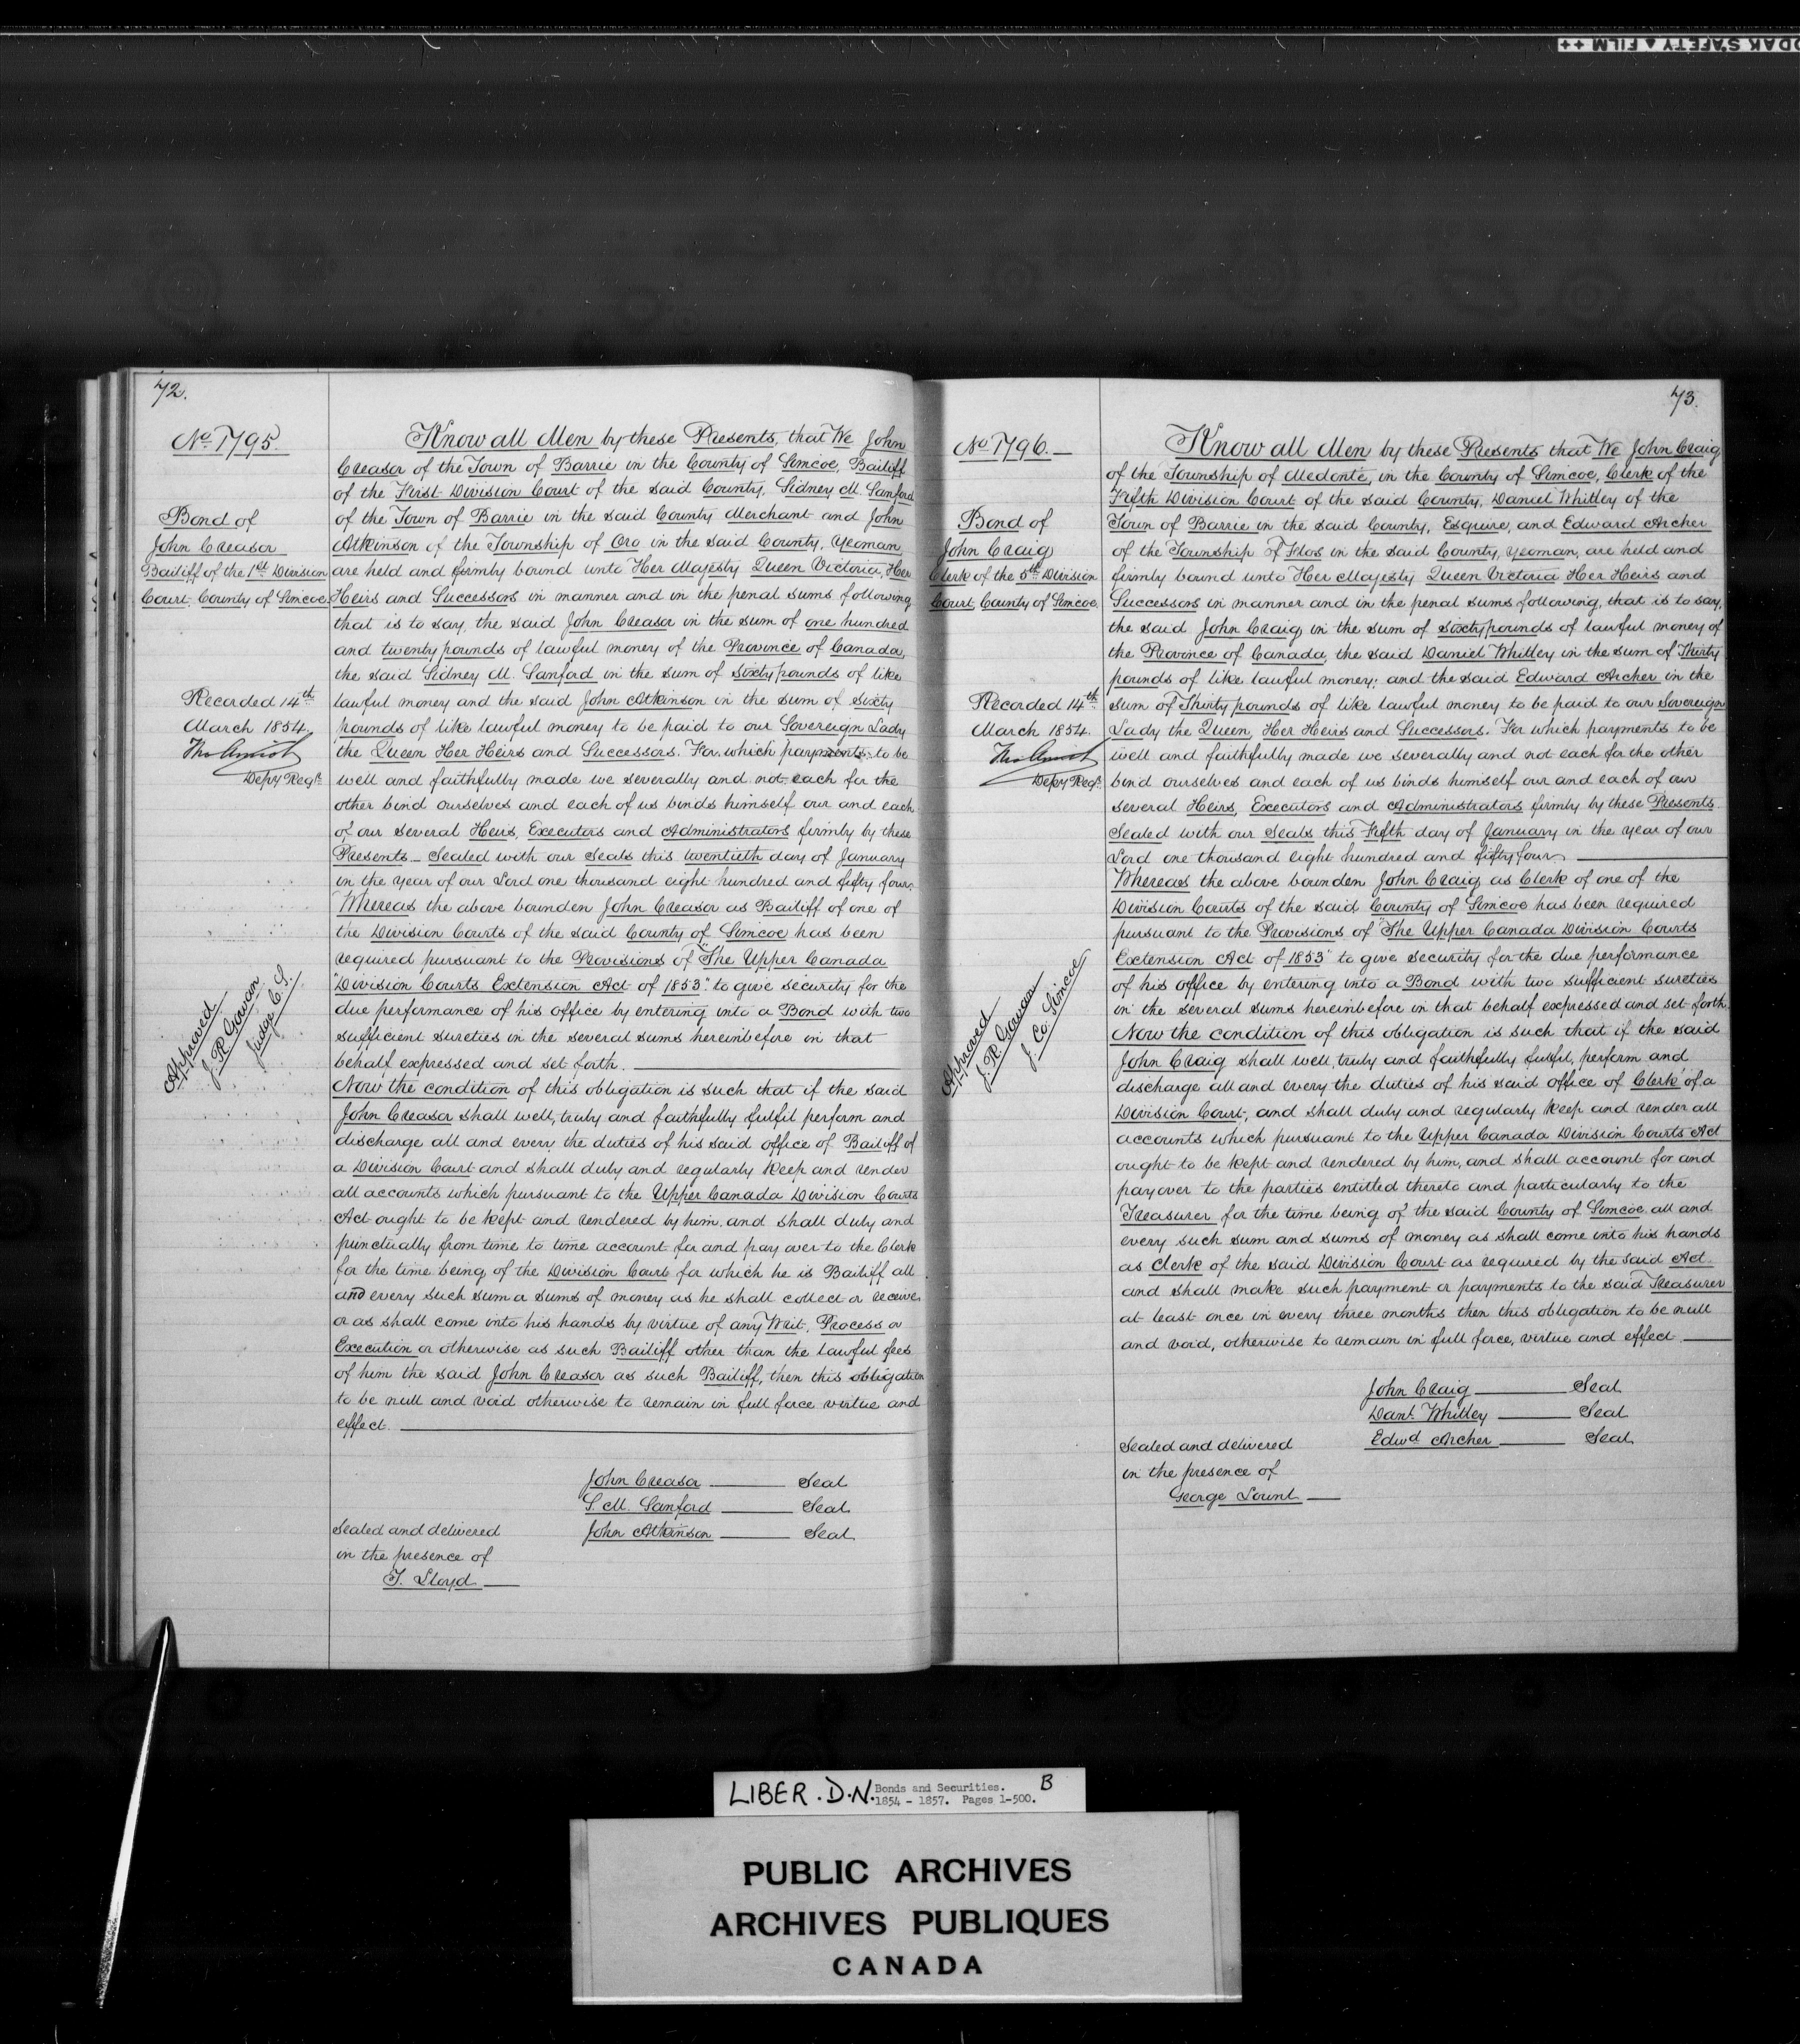 72.
No 1795.
Bond of
John Creasor
Bailiff of the 1st Division
Court, County of Simcoe.
Recorded 14th
March 1854.
Depy Regr
Approved
J. R. Gowan
Judge C. S.
Know all Men by these Presents, that We John
Creasor of the Town of Barrie in the County of Simcoe, Bailiff
of the First Division Court of the said County, Sidney M. Sanford
of the Town of Barrie in the said County Merchant and John
Atkinson of the Township of Oro in the said County, Yeoman,
are held and firmly bound unto Her Majesty Queen Victoria, Her
Heirs and Successors in manner and in the penal sums following
that is to say, the said John Creasor in the sum of one hundred
and twenty pounds of lawful money of the Province of Canada,
the said Sidney M. Sanford in the sum of sixty pounds of like
lawful money and the said John Atkinson in the sum of sixty
pounds of like lawful money to be paid to our Sovereign Lady
the Queen Her Heirs and Successors. For which payments to be
well and faithfully made we severally and not each for the
other bind ourselves and each of us binds himself our and each
of our several Heirs, Executors and Administrators firmly by these
Presents - Sealed with our Seals this twentieth day of January
in the year of our Lord one thousand eight hundred and fifty four.
Whereas the above bounden John Creasor as Bailiff of one of
the Division Courts of the said County of Simcoe has been
required pursuant to the Provisions of "The Upper Canada
"Division Courts Extension Act of 1853" to give security for the
due performance of his office by entering into a Bond with two
sufficient sureties in the several sums hereinbefore in that
behalf expressed and set forth.
Now the condition of this obligation is such that if the said
John Creasor shall well, truly and faithfully fulfil perform and
discharge all and every the duties of his said office of Bailiff of
a Division Court and shall duly and regularly keep and render
all accounts which pursuant to the Upper Canada Division Courts
Act ought to be kept and rendered by him, and shall duly and
punctually from time to time account for and pay over to the Clerk
for the time being of the Division Court for which he is Bailiff all
and every such sum or sums of money as he shall collect or receive
or as shall come into his hands by virtue of any Writ, Process or
Execution or otherwise as such Bailiff other than the lawful fees
of him the said John Creasor as such Bailiff, then this obligation
to be null and void otherwise to remain in full force virtue and
effect.
John Creasor Seal
S. M. Sanford Seal
Sealed and delivered John Atkinson Seal
in the presence of
T. Lloyd
73.
No 1796.
Bond of
John Craig
Clerk of the 5th Division
Court, County of Simcoe.
Recorded 14th
March 1854.
Depy Regr
Approved
J. R. Gowan
J. Co. Simcoe
Know all Men by these Presents that We John Craig
of the Township of Medonte, in the County of Simcoe, Clerk of the
Fifth Division Court of the said County, Daniel Whitley of the
Town of Barrie in the said County, Esquire, and Edward Archer
of the Township of Flos in the said County, Yeoman, are held and
firmly bound unto Her Majesty Queen Victoria Her Heirs and
Successors in manner and in the penal sums following, that is to say,
the said John Craig in the sum of sixty pounds of lawful money of
the Province of Canada, the said Daniel Whitley in the sum of Thirty
pounds of like lawful money; and the said Edward Archer in the
sum of Thirty pounds of like lawful money to be paid to our Sovereign
Lady the Queen, Her Heirs and Successors. For which payments to be
well and faithfully made we severally and not each for the other
bind ourselves and each of us binds himself our and each of our
several Heirs, Executors and Administrators firmly by these Presents.
Sealed with our Seals this Fifth day of January in the year of our
Lord one thousand eight hundred and fifty four.
Whereas the above bounden John Craig as Clerk of one of the
Division Courts of the said County of Simcoe has been required
pursuant to the Provisions of "The Upper Canada Division Courts
Extension Act of 1853" to give security for the due performance
of his office by entering into a Bond with two sufficient sureties
in the several sums hereinbefore in that behalf expressed and set forth.
Now the condition of this obligation is such that if the said
John Craig shall well, truly and faithfully fulfil, perform and
discharge all and every the duties of his said office of Clerk of a
Division Court, and shall duly and regularly keep and render all
accounts which pursuant to the Upper Canada Division Courts Act
ought to be kept and rendered by him, and shall account for and
pay over to the parties entitled thereto and particularly to the
Treasurer for the time being of the said County of Simcoe all and
every such sum and sums of money as shall come into his hands
as Clerk of the said Division Court as required by the said Act.
and shall make such payment or payments to the said Treasurer
at least once in every three months then this obligation to be null
and void, otherwise to remain in full force, virtue and effect.
John Craig Seal
Danl. Whitley Seal
Edwd Archer Seal
Sealed and delivered
in the presence of
George Lount
LIBER. D.N. Bonds and Securities. B
1854 - 1857. Pages 1-500.
PUBLIC ARCHIVES
ARCHIVES PUBLIQUES
CANADA